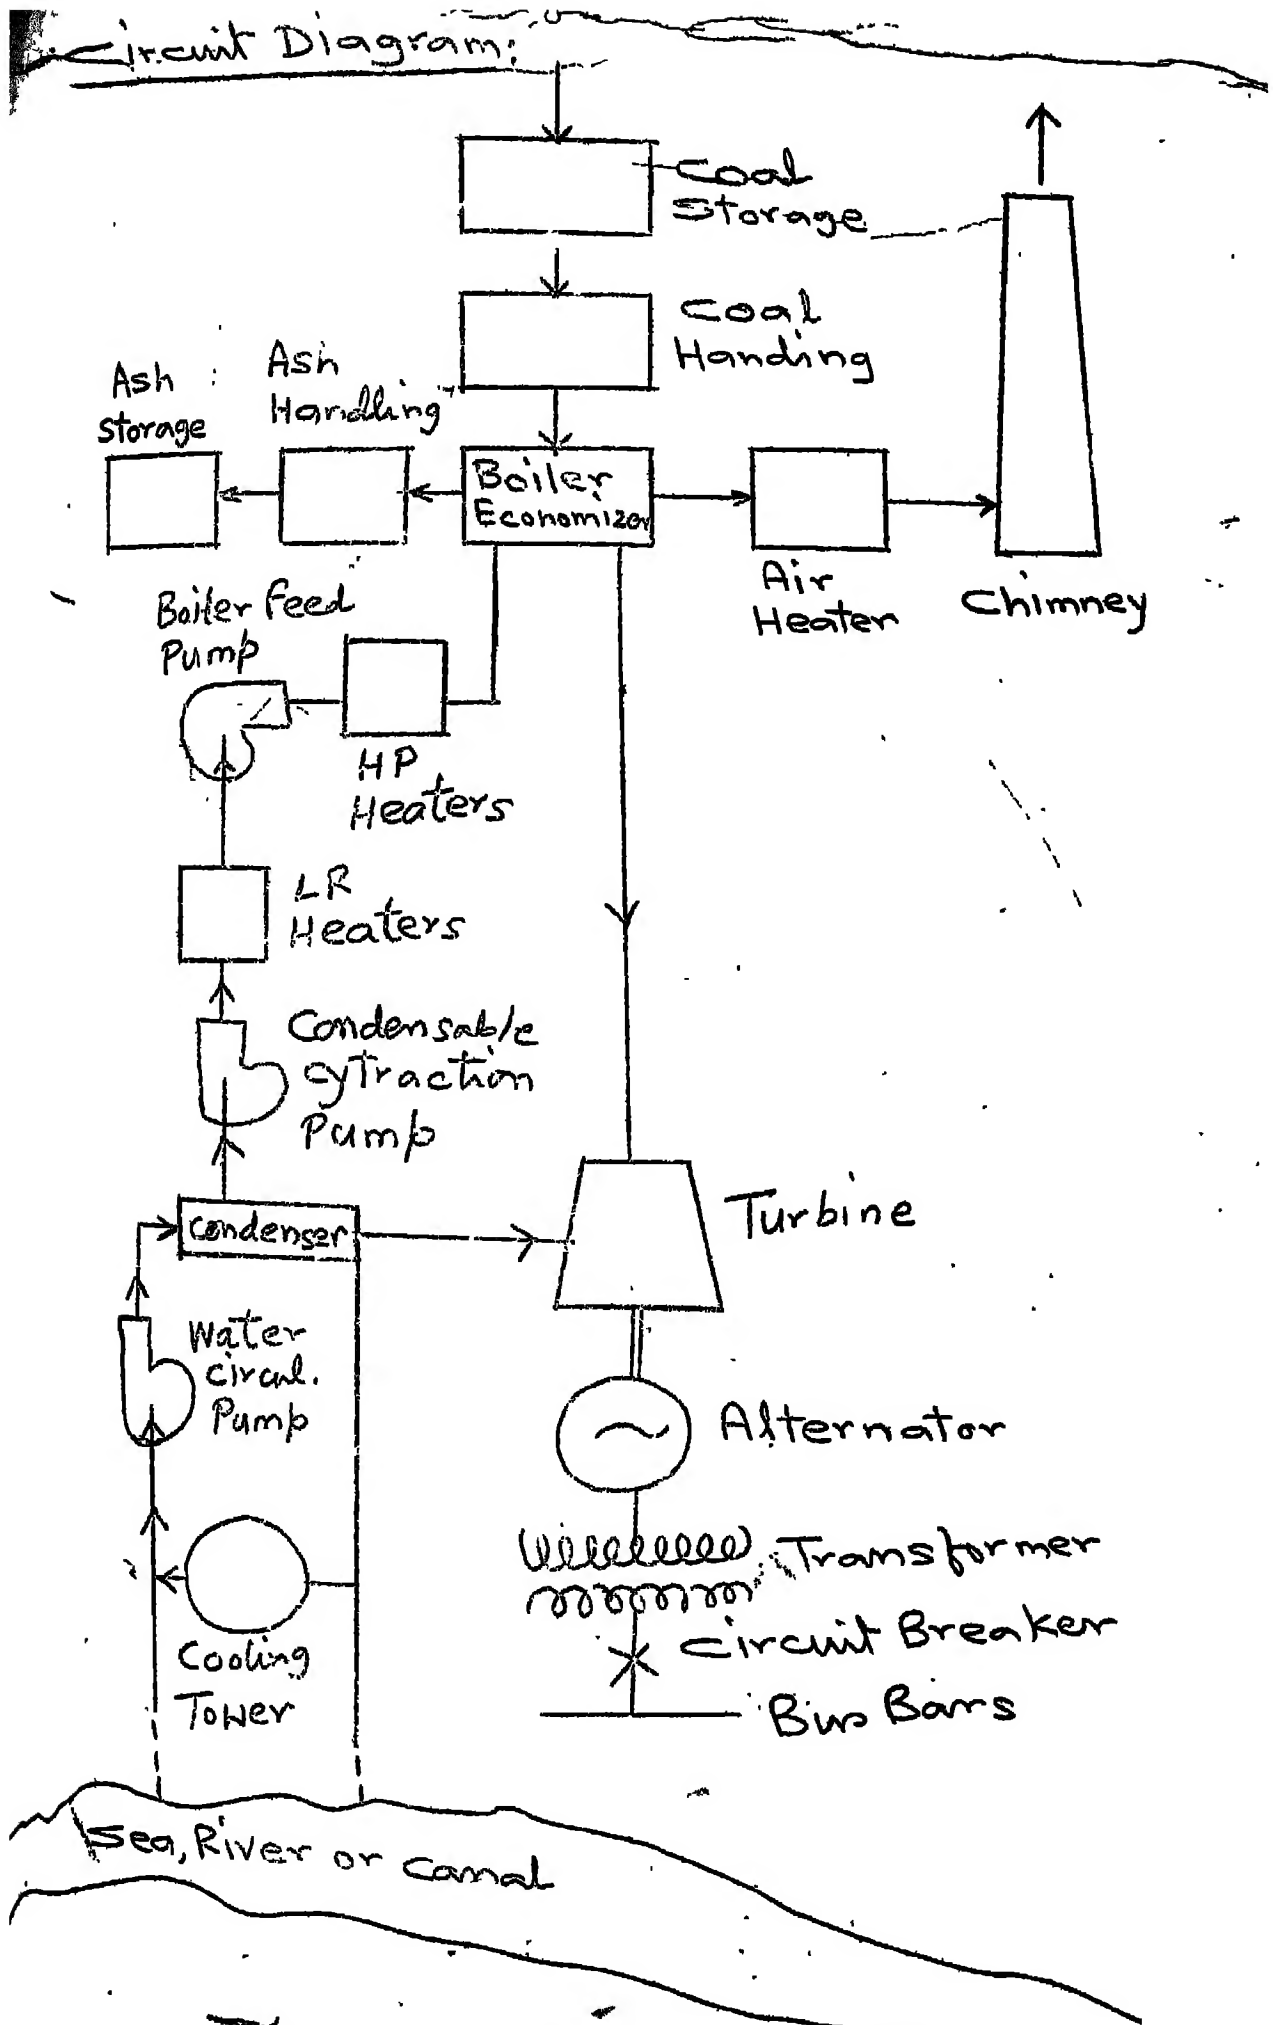 Circuit Diagram:
Coal
Storage
Coal
Handing
Ash
Storage
Ash
Handling
Boiler
Economizer
Air
Heater
Chimney
Boiler feed
Pump
HP
Heaters
LR
Heaters
Condensable
cytraction
Pump
Condenser
Turbine
Water
circul.
Pump
Alternator
Transformer
Circuit Breaker
Bus Bars
Cooling
Tower
Sea, River or Canal